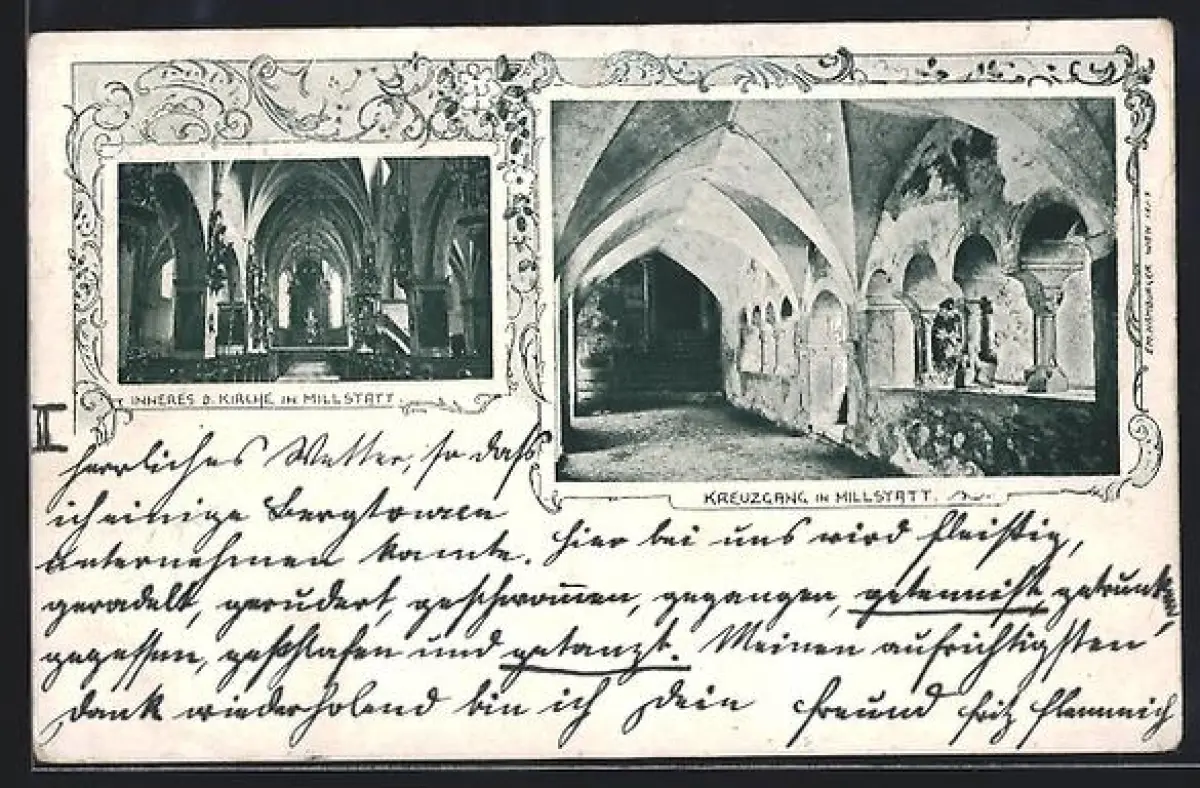 INNERES D. KIRCHE IN MILLSTATT.
KREUZGANG IN MILLSTATT.
EM. HAMBURGER WIEN
I
herrliches Wetter, so daß
ich einige Bergtouren
unternehmen konnte. Hier bei uns wird fleißig,
geradelt, gerudert, geschwom̄en, gegangen, getennist, getrunken,
gegessen, geschlafen und getanzt. Meinen aufrichtigsten
Dank wiederholend bin ich Dein Freund Fritz